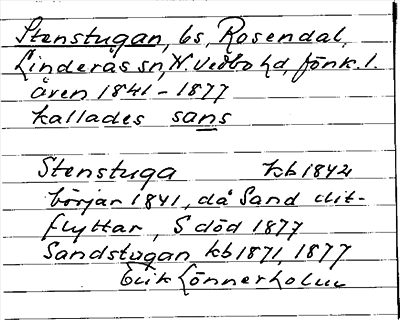 Stenstugan, bs, Rosendal,
Linderås sn, N. Vedbo hd, Jönk. l.
åren 1841-1877
kallades sans
Stenstuga kb 1842
börjar 1841, då Sand dit-
flyttar, S död 1877
Sandstugan kb 1871, 1877
Erik Lönnerholm